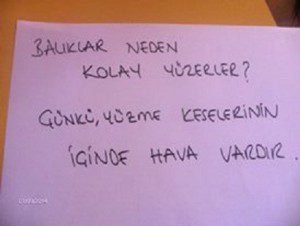 BALIKLAR NEDEN
KOLAY YÜZERLER?
GÜNKÜ, YÜZME KESELERİNİN
İGİNDE HAVA VARDIR.